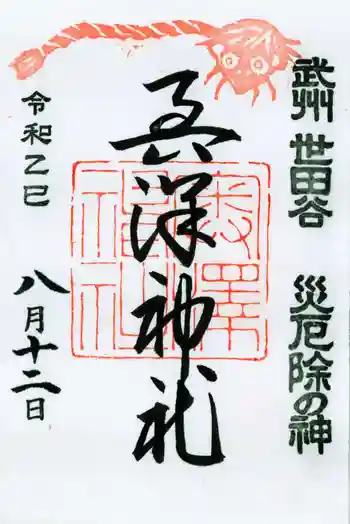 武州 世田谷 災厄除の神
奥澤神社
令和乙巳
八月十二日